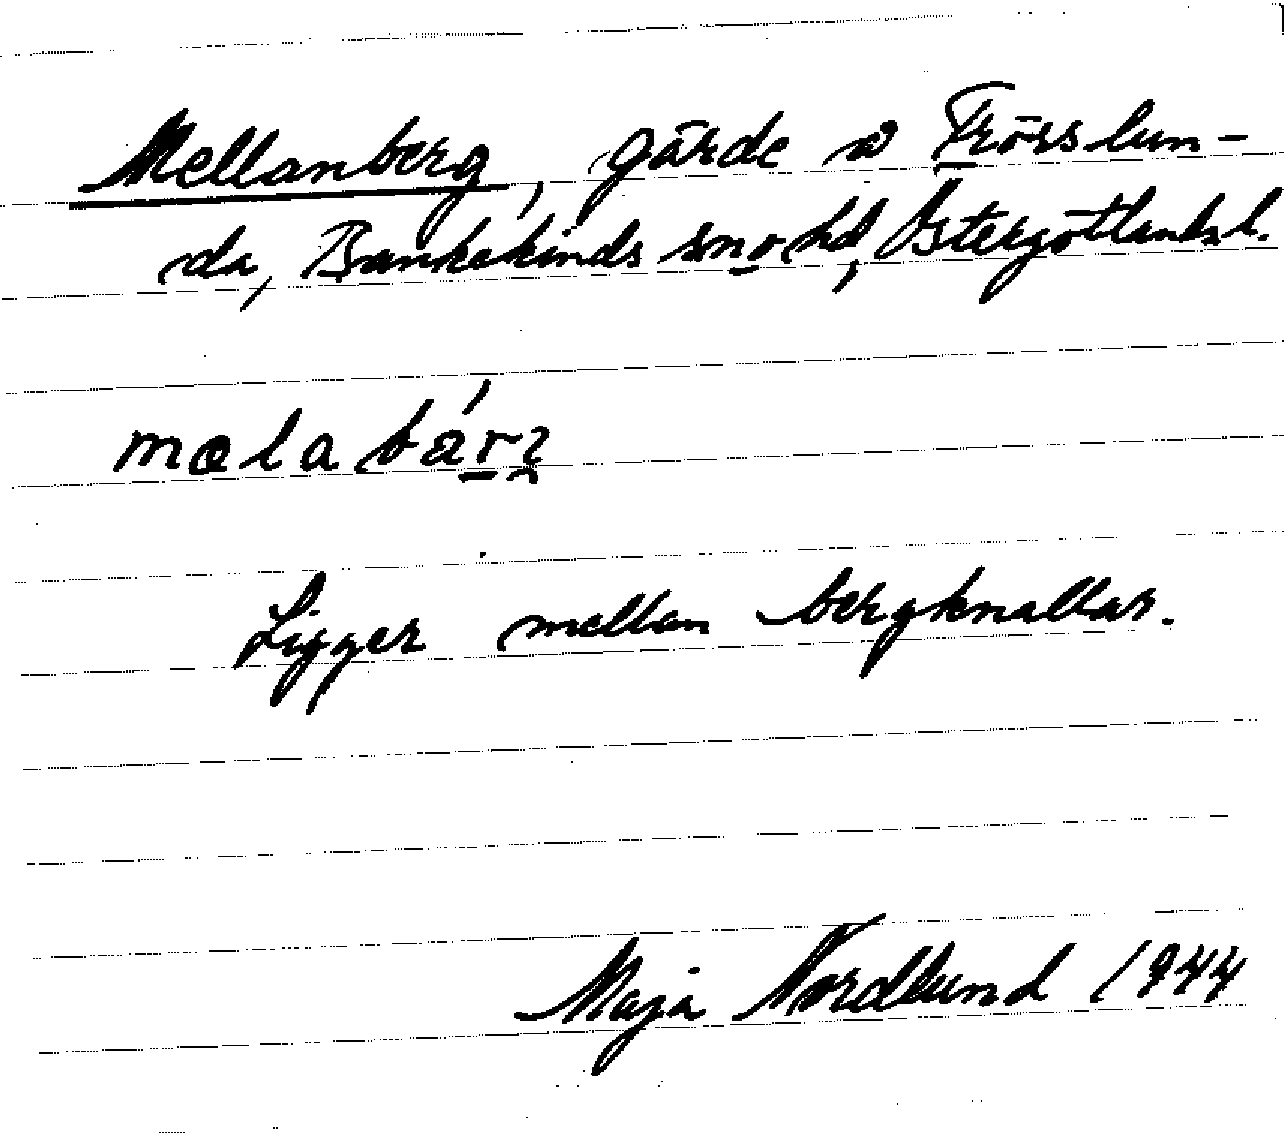 Mellanberg, gärde a Frösslun-
da, Bankekinds sn o hd, Östergötlands l.
melabárz
Ligger mellan bergknallar.
Maja Nordlund 1944